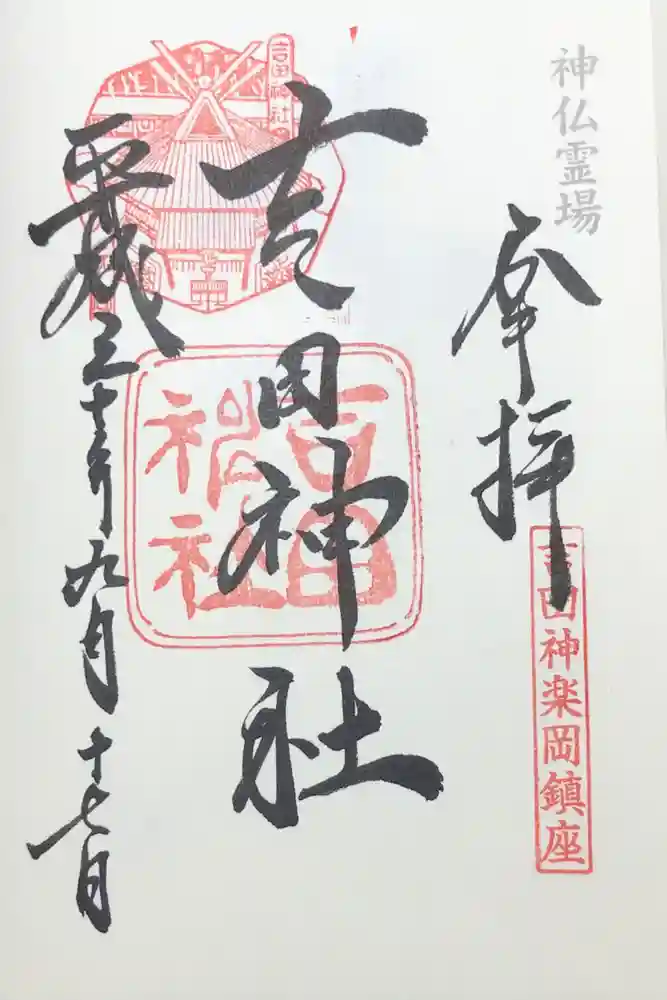 神仏霊場
奉拝
吉田神楽岡鎮座
吉田神社
吉田神社
吉田神社
平成三十年九月十七日